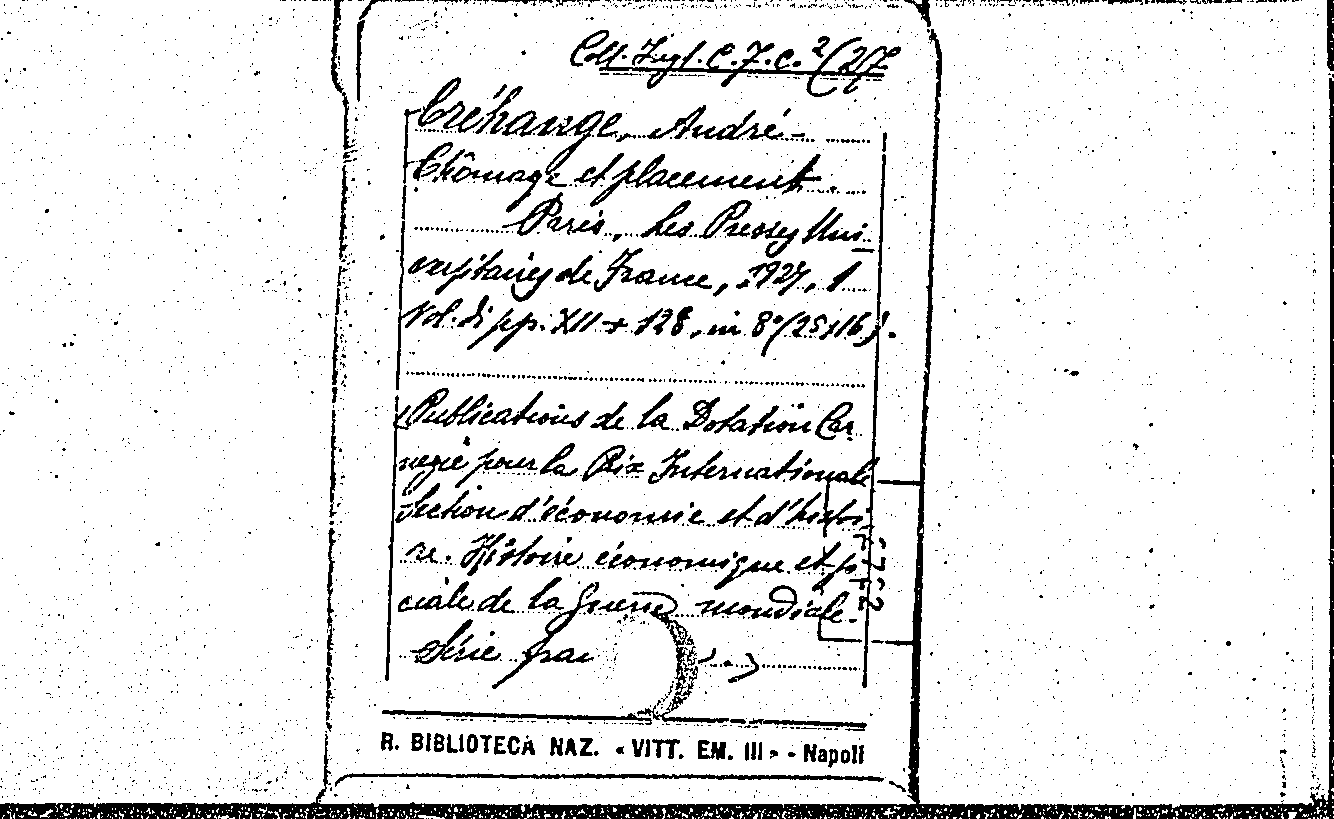 Coll. Ingl. C. J. C. 2/(2/7
Créhange, André -
Chômage et placement.
Paris, Les Presses Uni
versitaires de France, 1927, 1
Vol. di pp. XII + 128, in 8° (25x16).
(Publications de la Dotation Car
negie pour la Paix Internationale
Section d'économie et d'histoi-
re. Histoire économique et so
ciale de la Guerre mondiale.
Série fran
R. BIBLIOTECA NAZ. « VITT. EM. III » - Napoli